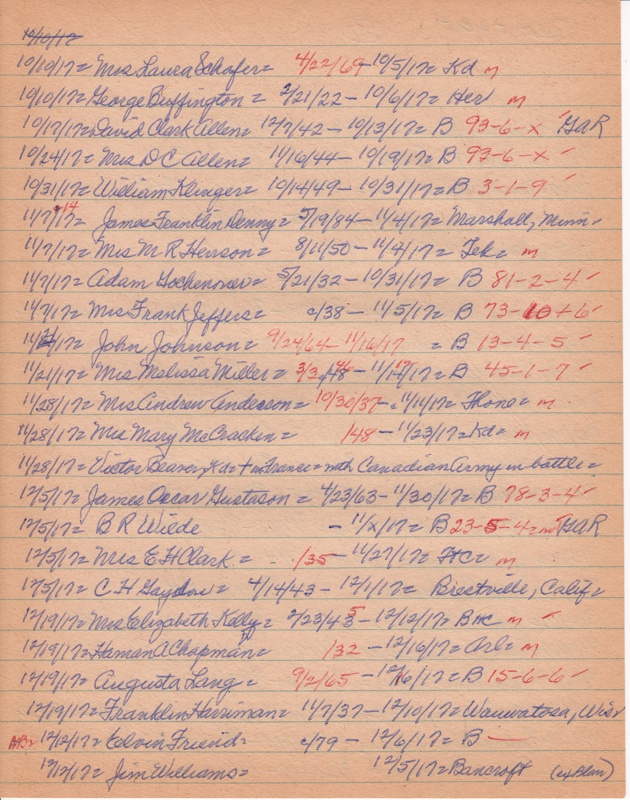 10/10/17
10/10/17= Mrs Laura Schafer= 4/22/69-10/5/17= Kd m
10/10/17= George Buffington = 2/21/22-10/6/17= Her m
10/17/17= David Clark Allen= 12/7/42-10/13/17= B 93-6-x ✓ GAR
10/24/17= Mrs D C Allen= 11/16/44-10/19/17= B 93-6-x ✓
10/31/17= William Klinger= 10/14/49-10/31/17= B 3-1-9 ✓
11/7/17= 14 James Franklin Denny= 5/19/84-11/4/17= Marshall, Minn.
11/7/17= Mrs M R Herson= 8/11/50-11/4/17= Tek= m
11/7/17= Adam Gochenour= 5/21/32-10/31/17= B 81-2-4 ✓
11/7/17= Mrs Frank Jeffers= c/38-11/5/17= B 73-10+6 ✓
11/21/17= John Johnson= 9/24/64-11/16/17 = B 13-4-5 ✓
11/21/17= Mrs Melissa Miller= 3/3/48-11/17= B 45-1-7 ✓
11/28/17= Mrs Andrew Anderson= 10/30/37-11/11/17= Thone= m
11/28/17= Mrs Mary McCracken= /48-11/23/17= Kd= m
11/28/17= Victor Deaver, Kd= + in France= with Canadian Army in battle=
12/5/17= James Oscar Gustason= 4/23/63-11/30/17= B 78-3-4 ✓
12/5/17= B R Wilde -11/x/17= B 23-5-4= m GAR
12/5/17= Mrs E H Clark= /35-11/27/17= HC= m
12/5/17= C H Gaydou= 4/14/43-12/1/17= Brestville, Calif=
12/19/17= Mrs Elizabeth Kelly= 2/23/45-12/12/17= B HC m ✓
12/19/17= Haman A Chapman= /32-12/16/17= Arl= m
12/19/17= Augusta Lang= 9/2/65-12/16/17= B 15-6-6 ✓
12/19/17= Franklin Harriman= 11/7/37-12/10/17= Wauwatosa, Wis
AB= 12/12/17= Elvin Friend= c/79-12/6/17= B -
12/12/17= Jim Williams= 12/5/17= Bancroft (ex Blair)